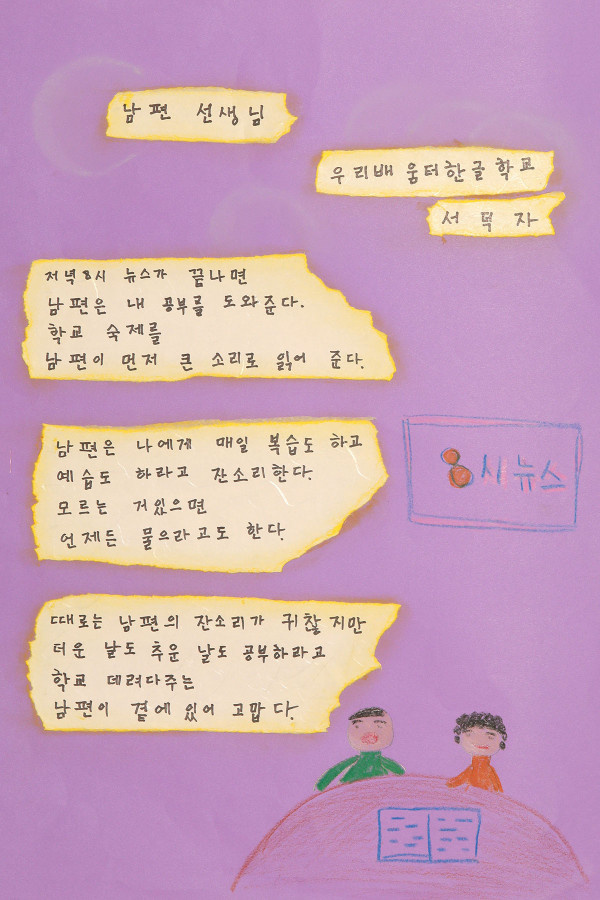 남편 선생님
우리배움터한글학교
서덕자
저녁 8시 뉴스가 끝나면
남편은 내 공부를 도와준다.
학교 숙제를
남편이 먼저 큰 소리로 읽어 준다.
남편은 나에게 매일 복습도 하고
예습도 하라고 잔소리한다.
모르는 거있으면
언제든 물으라고도 한다.
8시뉴스
때로는 남편의 잔소리가 귀찮지만
더운 날도 추운 날도 공부하라고
학교 데려다주는
남편이 곁에 있어 고맙다.